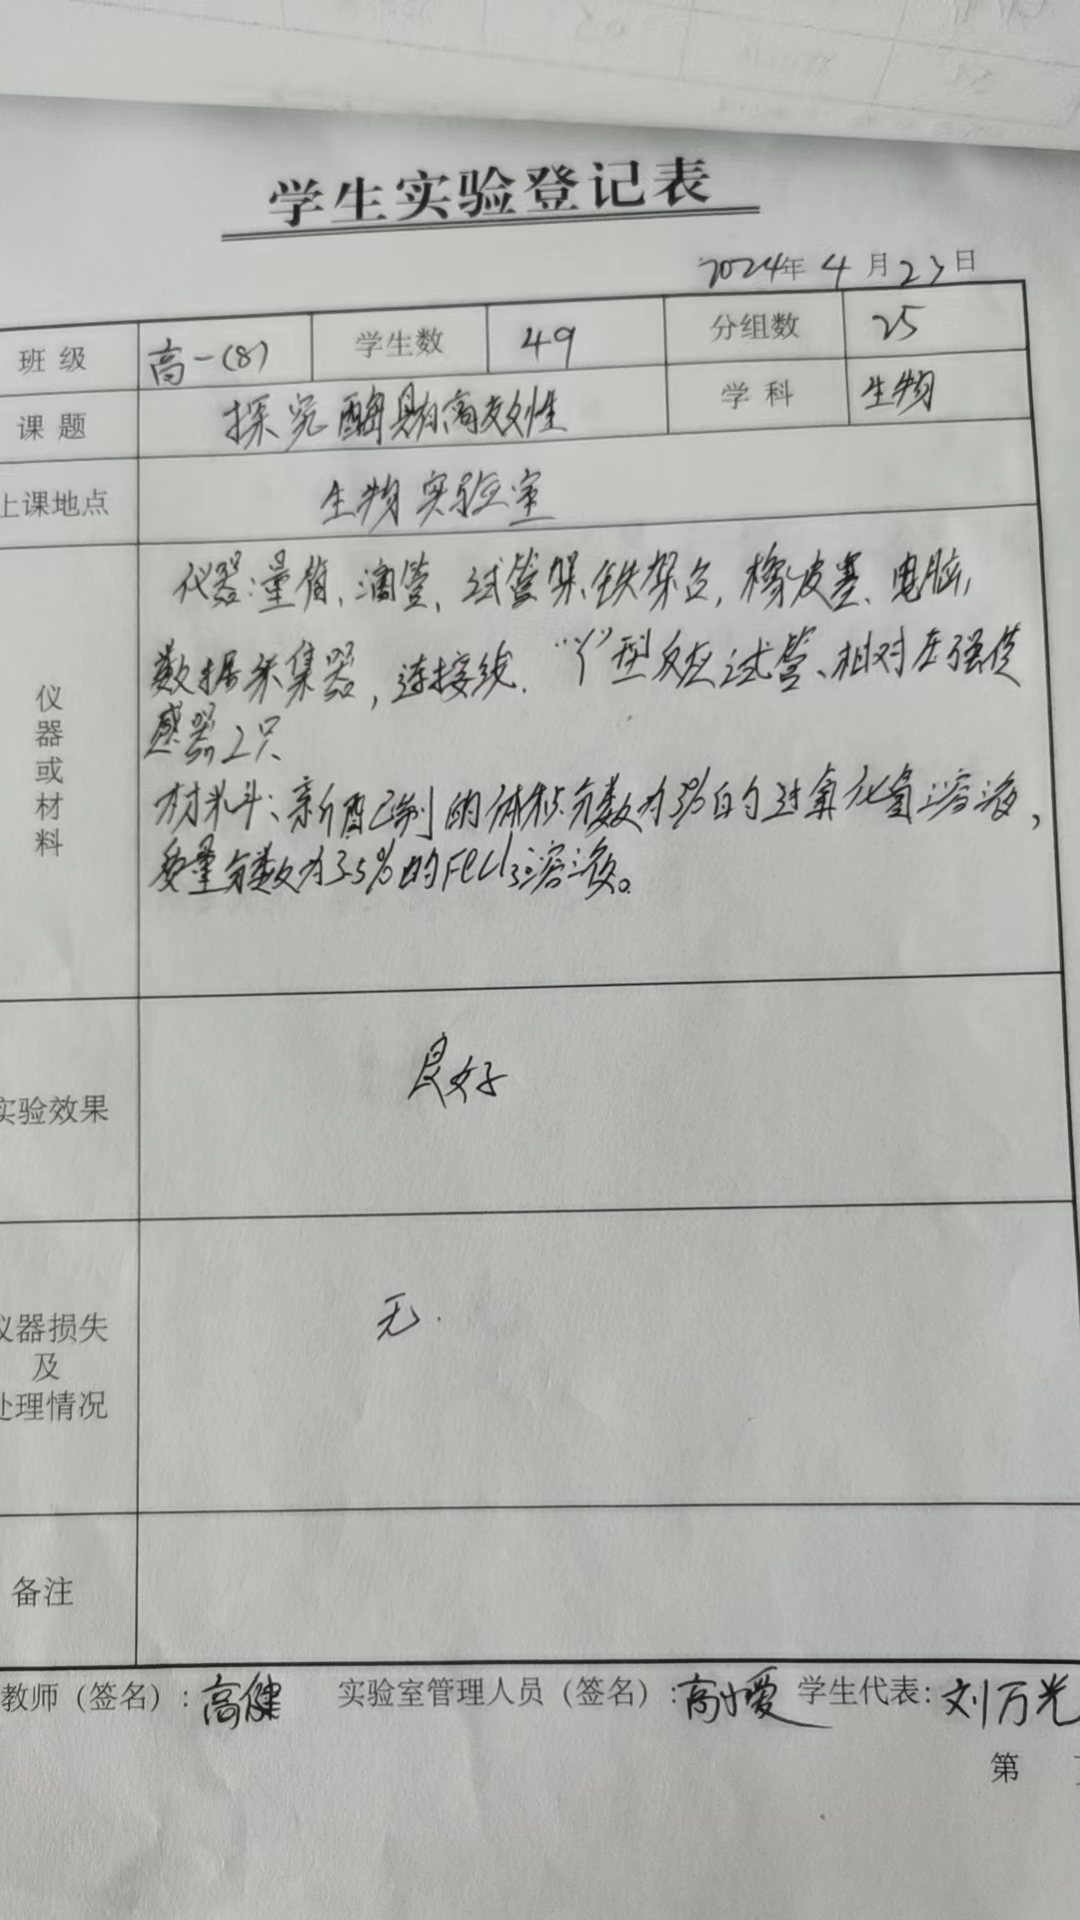 学生实验登记表
2024年 4 月 23 日
班 级 高一(8) 学生数 49 分组数 25
课 题 探究酶具有高效性 学 科 生物
上课地点 生物实验室
仪器或材料
仪器:量筒、滴管、试管架、铁架台、橡皮塞、电脑、
数据采集器,连接线、“Y”型反应试管、相对压强传
感器2只
材料:新配制的体积分数为3%的过氧化氢溶液,
质量分数为3.5%的FeCl3溶液。
实验效果 良好
仪器损失
及
处理情况
无.
备注
教师(签名):高健 实验室管理人员(签名):高小爱 学生代表:刘万光
第